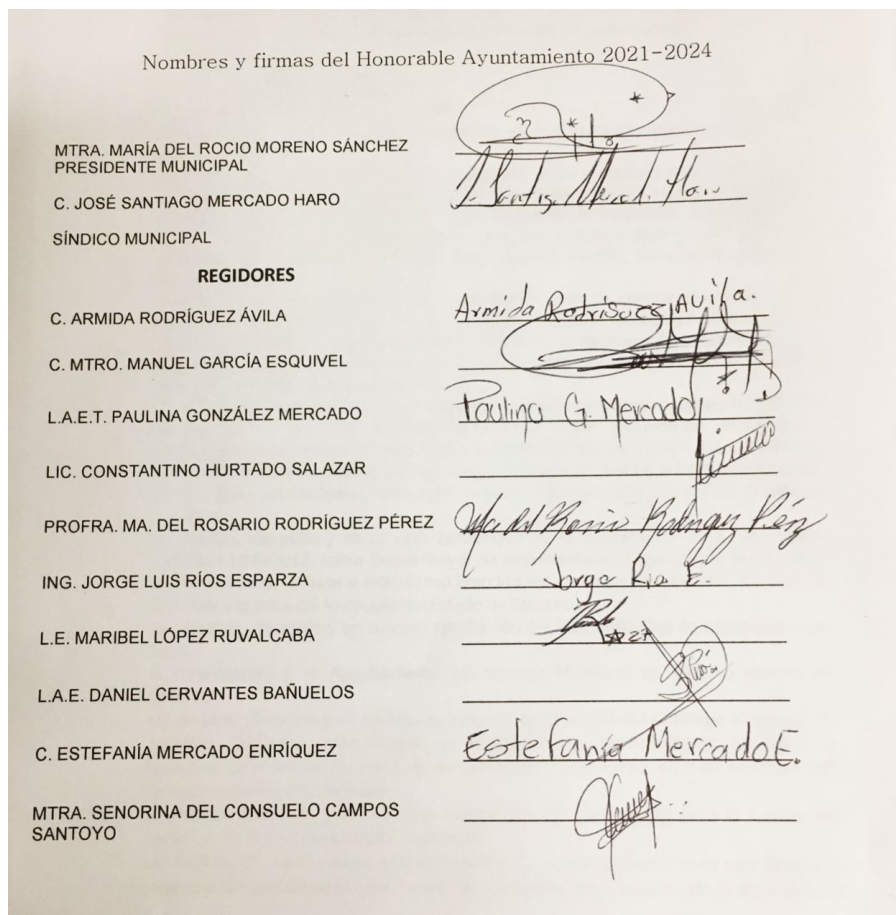 Nombres y firmas del Honorable Ayuntamiento 2021-2024
MTRA. MARÍA DEL ROCIO MORENO SÁNCHEZ
PRESIDENTE MUNICIPAL
C. JOSÉ SANTIAGO MERCADO HARO
SÍNDICO MUNICIPAL
REGIDORES
C. ARMIDA RODRÍGUEZ ÁVILA
Armida Rodriguez Avila.
C. MTRO. MANUEL GARCÍA ESQUIVEL
L.A.E.T. PAULINA GONZÁLEZ MERCADO
Paulina G. Mercado
LIC. CONSTANTINO HURTADO SALAZAR
PROFRA. MA. DEL ROSARIO RODRÍGUEZ PÉREZ
ING. JORGE LUIS RÍOS ESPARZA
Jorge Rios E.
L.E. MARIBEL LÓPEZ RUVALCABA
27
L.A.E. DANIEL CERVANTES BAÑUELOS
C. ESTEFANÍA MERCADO ENRÍQUEZ
Estefanía Mercado E.
MTRA. SENORINA DEL CONSUELO CAMPOS
SANTOYO